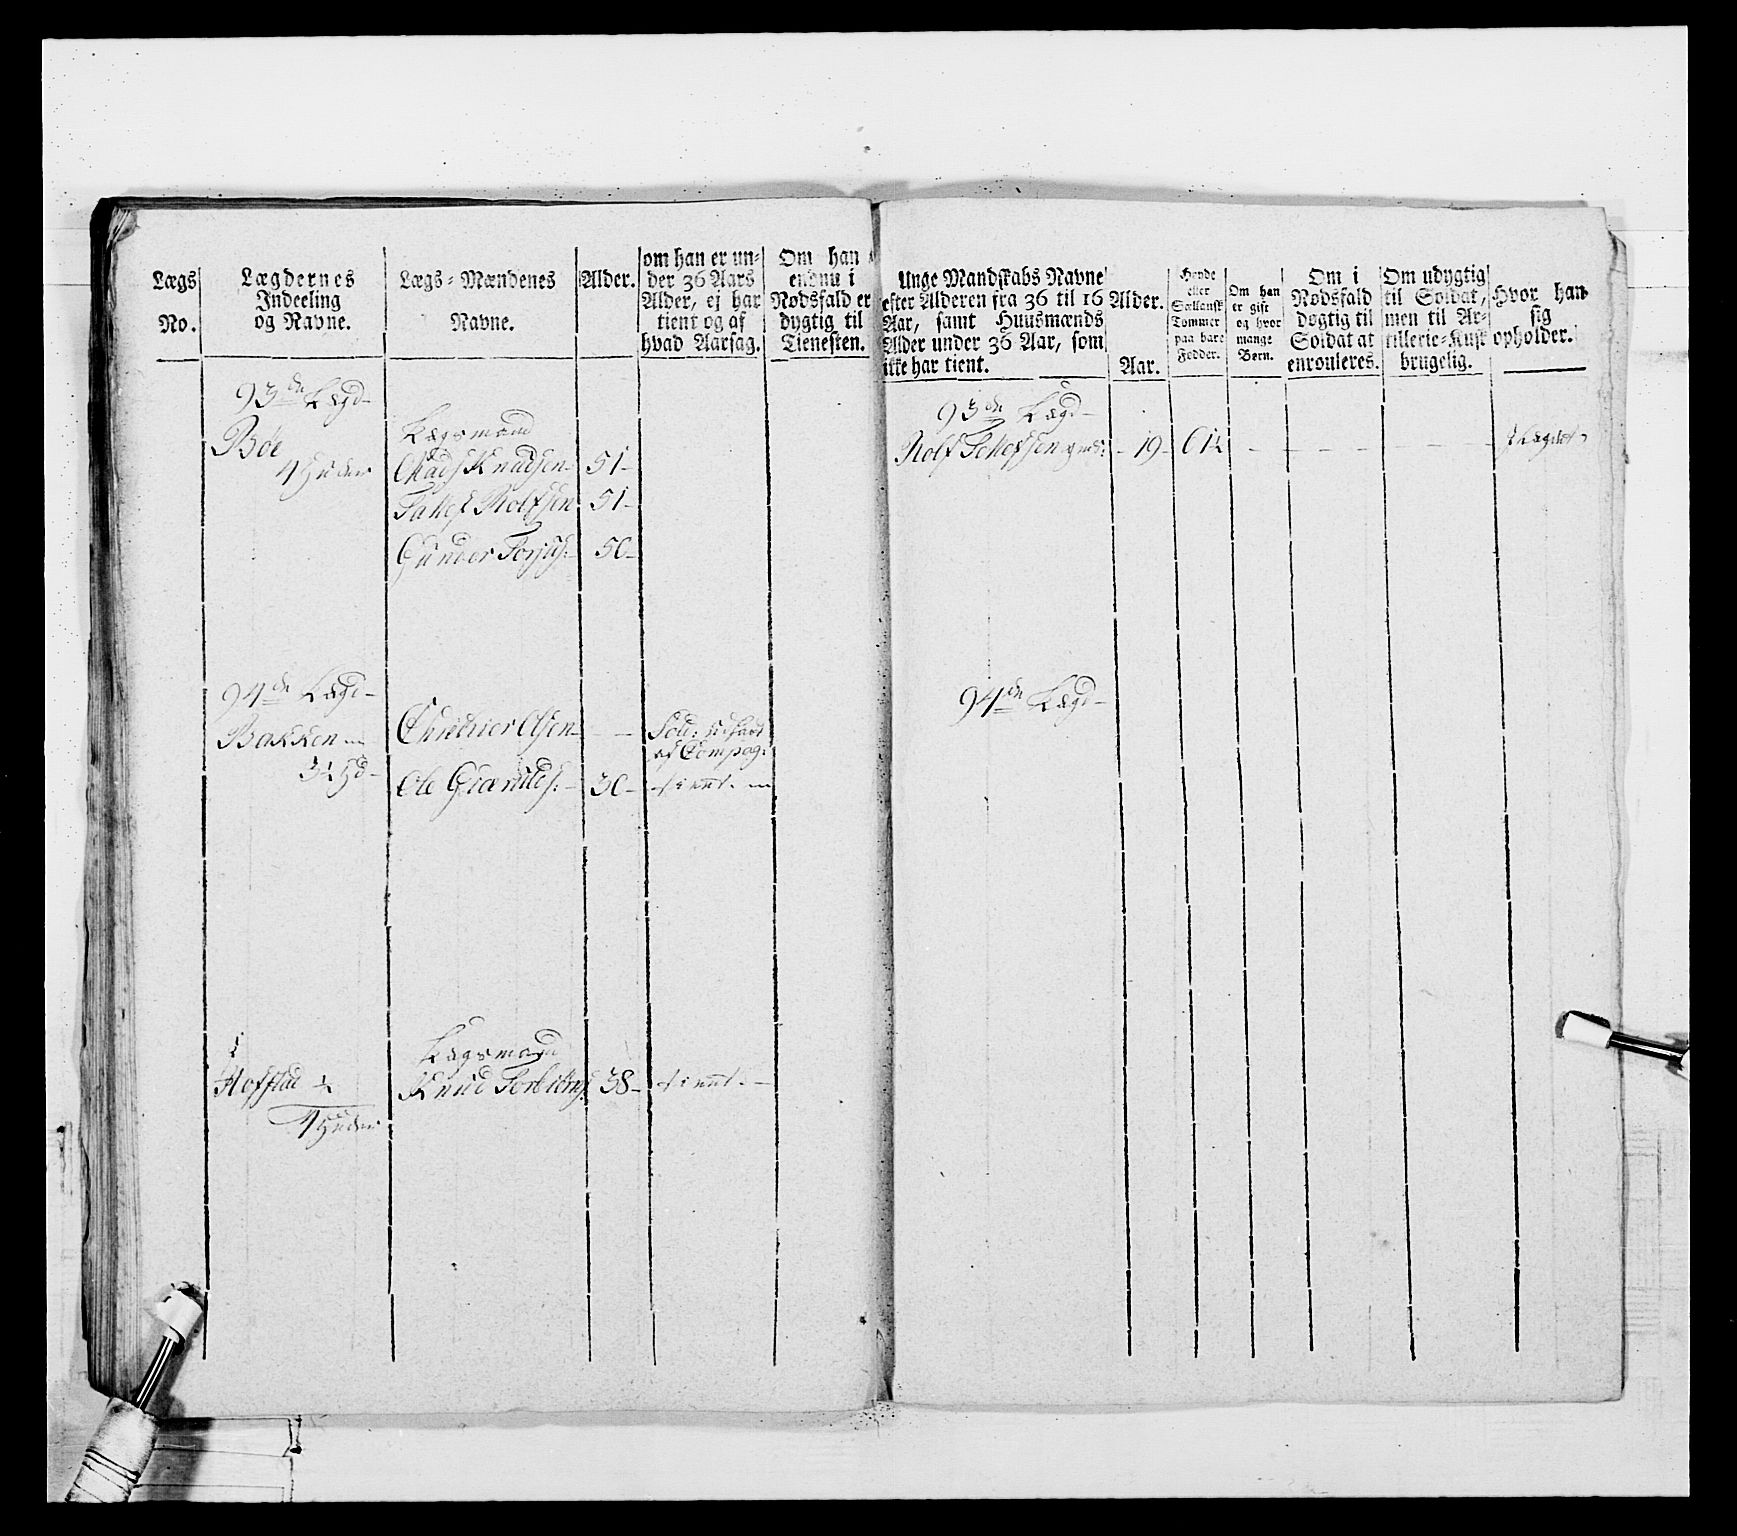 Lægs
No.
Lægdernes
Indeeling
og Navne.
Lægs-Mændenes
Navne.
Alder.
om han er un-
der 36 Aars
Alder, ej har
tient og af
hvad Aarsag.
Om han
endnu i
Nødsfald er
dygtig til
Tienesten.
93de Lægd-
Bøe
4 Huder
Lægsmand
Mads Knudsen- 51-
Tallef Rolfsen 51-
Gunder Torjus:- 50-
94de Lægd-
Bakken
3½ Hd-
Christier Olsen-
Sold:
af Compag:
Ole Gunulds:- 30- tient-
Hofstad ½
4 Huder
Lægsmand
Knud Torbiørns: 38- tient-
Unge Mandskabs Navne
efter Alderen fra 36 til 16
Aar, samt Huusmænds
Alder under 36 Aar, som
ikke har tient.
Alder.
Aar.
Høyde
eller
Sællansk
Tommer
paa bare
Fødder.
Om han
er gift
og hvor
mange
Børn.
Om i
Nødsfald
døgtig til
Soldat at
enroulleres.
Om udygtig
til Soldat,
men til Ar-
tillerie-Kusk
brugelig.
Hvor han
sig
opholder.
93de Lægd-
Rolf Tellefsen - 19- 61½ - - - - - - i Lægdet-
94de Lægd-